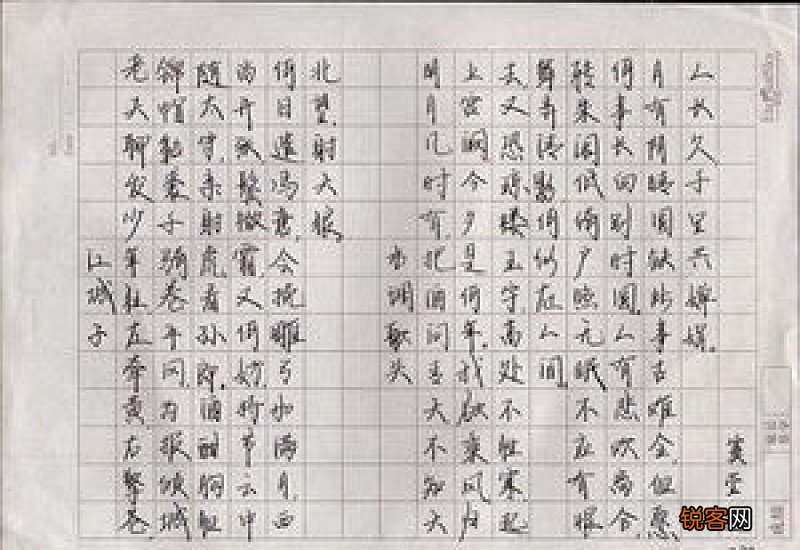 江城子
老夫聊发少年狂左牵黄右擎苍,
锦帽貂裘千骑卷平冈,为报倾城
随太守,亲射虎,看孙郎,酒酣胸胆
尚开张,鬓微霜,又何妨,持节云中
何日遣冯唐,会挽雕弓如满月,西
北望,射天狼。
水调歌头
明月几时有,把酒问青天不知天
上宫阙今夕是何年,我欲乘风归
去又恐琼楼玉宇,高处不胜寒起
舞弄清影,何似在人间,
转朱阁低绮户照无眠不应有恨
何事长向别时圆,人有悲欢离合,
月有阴晴圆缺此事古难全,但愿
人长久千里共婵娟。
锐客网